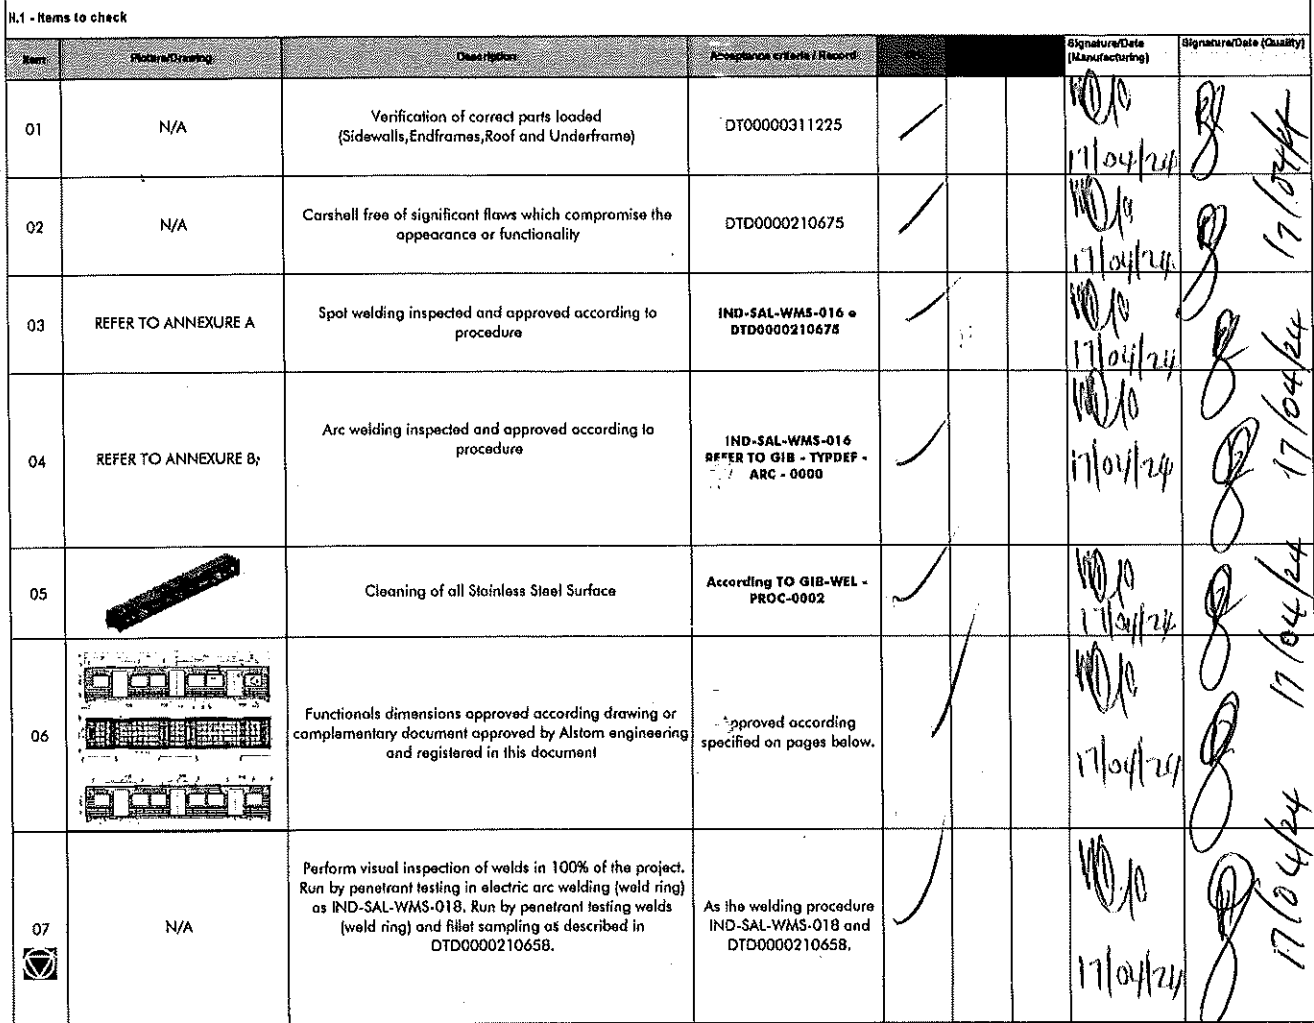 H.1 - Items to check
Item
Picture/Drawing
Description
Acceptance criteria / Record
Signature/Date
(Manufacturing)
Signature/Date (Quality)
01
N/A
Verification of correct parts loaded
(Sidewalls,Endframes,Roof and Underframe)
DT00000311225
17/04/24
17/04/24
02
N/A
Carshell free of significant flaws which compromise the
appearance or functionality
DTD0000210675
17/04/24
03
REFER TO ANNEXURE A
Spot welding inspected and approved according to
procedure
IND-SAL-WMS-016 e
DTD0000210675
17/04/24
17/04/24
04
REFER TO ANNEXURE B;
Arc welding inspected and approved according to
procedure
IND-SAL-WMS-016
REFER TO GIB - TYPDEF -
ARC - 0000
17/04/24
05
Cleaning of all Stainless Steel Surface
According TO GIB-WEL -
PROC-0002
17/04/24
17/04/24
06
Functionals dimensions approved according drawing or
complementary document approved by Alstom engineering
and registered in this document
Approved according
specified on pages below.
17/04/24
07
N/A
Perform visual inspection of welds in 100% of the project.
Run by penetrant testing in electric arc welding (weld ring)
as IND-SAL-WMS-018. Run by penetrant testing welds
(weld ring) and fillet sampling as described in
DTD0000210658.
As the welding procedure
IND-SAL-WMS-018 and
DTD0000210658.
17/04/24
17/04/24